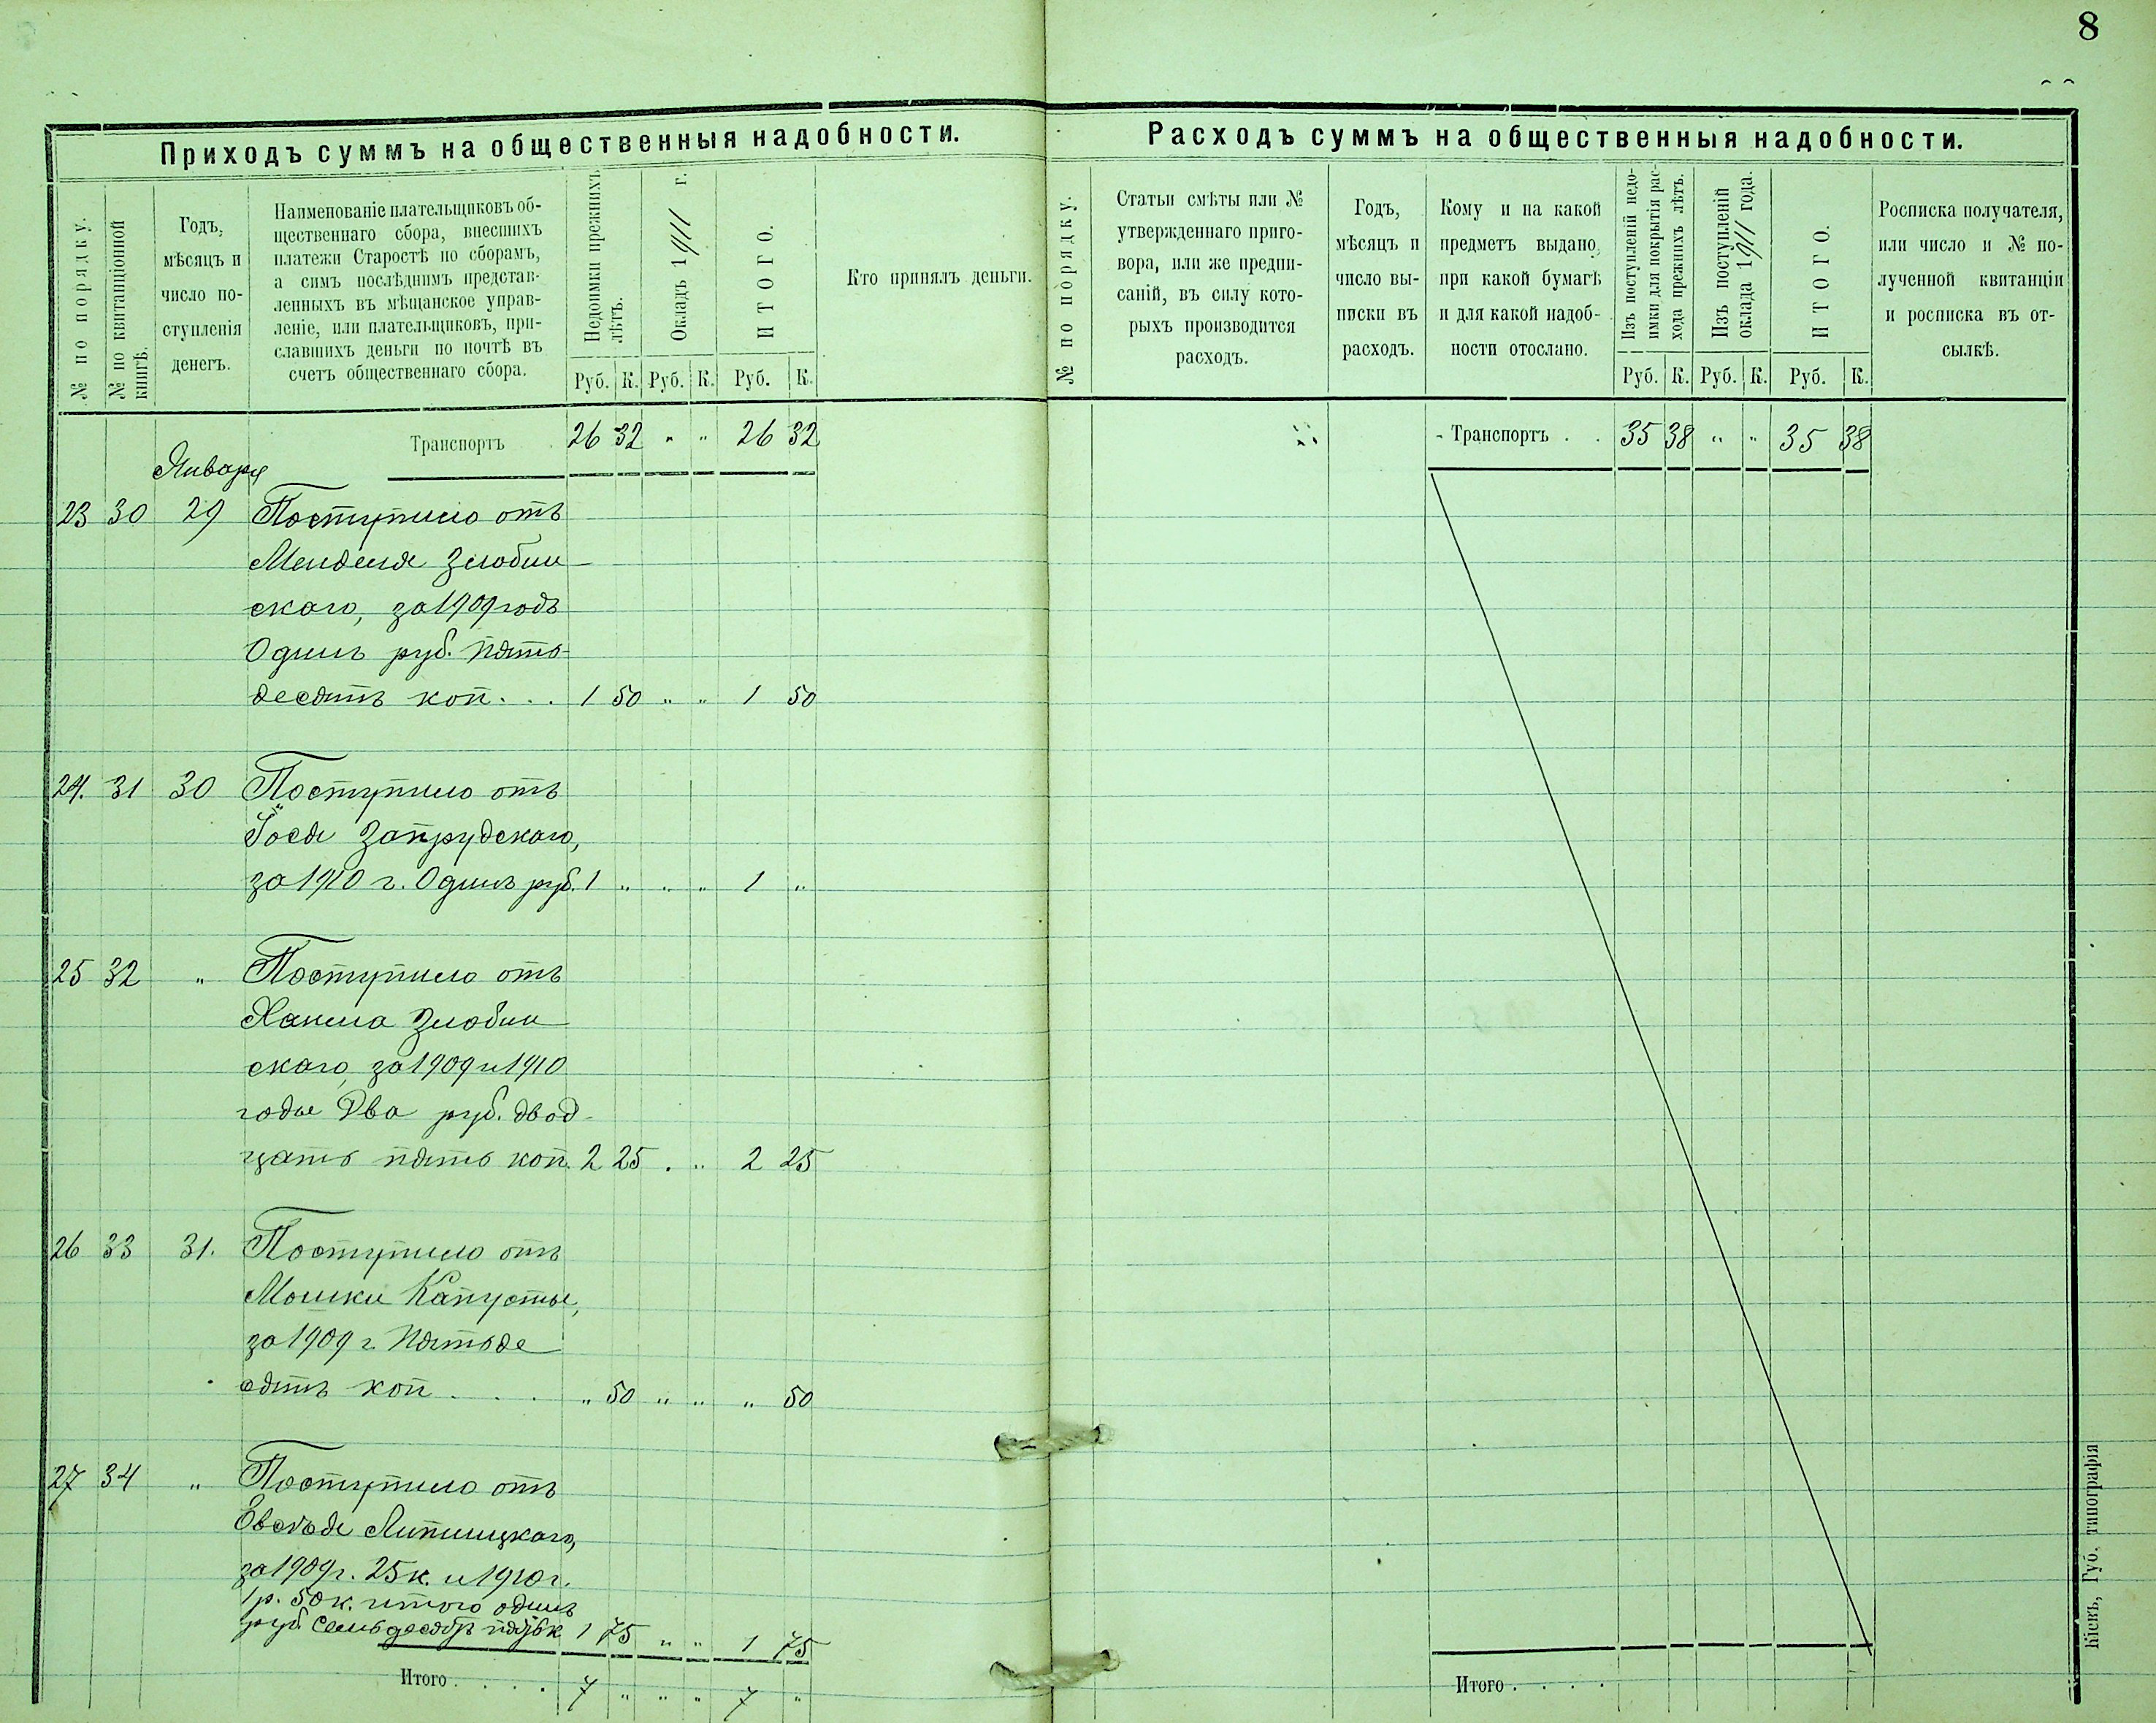 8
Приходъ суммъ на общественныя надобности.
№ по порядку.
№ по квитанціонной
книгѣ.
Годъ,
мѣсяцъ и
число по-
ступленія
денегъ.
Наименованіе плательщиковъ об-
щественнаго сбора, внесшихъ
платежи Старостѣ по сборамъ,
а симъ послѣднимъ представ-
ленныхъ въ мѣщанское управ-
леніе, или плательщиковъ, при-
славшихъ деньги по почтѣ въ
счетъ общественнаго сбора.
Недоимки прежнихъ
лѣтъ.
Окладъ 1911 г.
ИТОГО.
Руб. К. Руб. К. Руб. К.
Кто принялъ деньги.
Транспортъ 26 32 " " 26 32
Января
23 30 29 Поступило отъ
Менделя Злобин
скаго, за 1909 годъ
Одинъ руб. пять-
десятъ коп. . . 1 50 " " 1 50
24. 31 30 Поступило отъ
Іося Запрудскаго,
за 1910 г. Одинъ руб. 1 " " " 1 "
25 32 " Поступило отъ
Хаима Злобин
скаго, за 1909 и 1910
годы Два руб. двад-
цать пять коп. 2 25 . " 2 25
26 33 31. Поступило отъ
Мошки Капусты,
за 1909 г. Пятьде
сятъ коп . . . " 50 " " " 50
27 34 " Поступило отъ
Липницкаго,
за 1909 г. 25 к. и 1910 г.
1 р. 50 к. итого одинъ
руб. семьдесятъ пять к 1 75 " " 1 75
Итого . . . . 7 " " " 7 "
Расходъ суммъ на общественныя надобности.
№ по порядку.
Статьи смѣты или №
утвержденнаго приго-
вора, или же предпи-
саній, въ силу кото-
рыхъ производится
расходъ.
Годъ,
мѣсяцъ и
число вы-
писки въ
расходъ.
Кому и на какой
предметъ выдано,
при какой бумагѣ
и для какой надоб-
ности отослано.
Изъ поступленій недо-
имки для покрытія рас-
хода прежнихъ лѣтъ.
Изъ поступленій
оклада 1911 года.
ИТОГО.
Руб. К. Руб. К. Руб. К.
Росписка получателя,
или число и № по-
лученной квитанціи
и росписка въ от-
сылкѣ.
Транспортъ . . 35 38 " " 35 38
Итого . . . .
Кіевъ, Губ. типографія